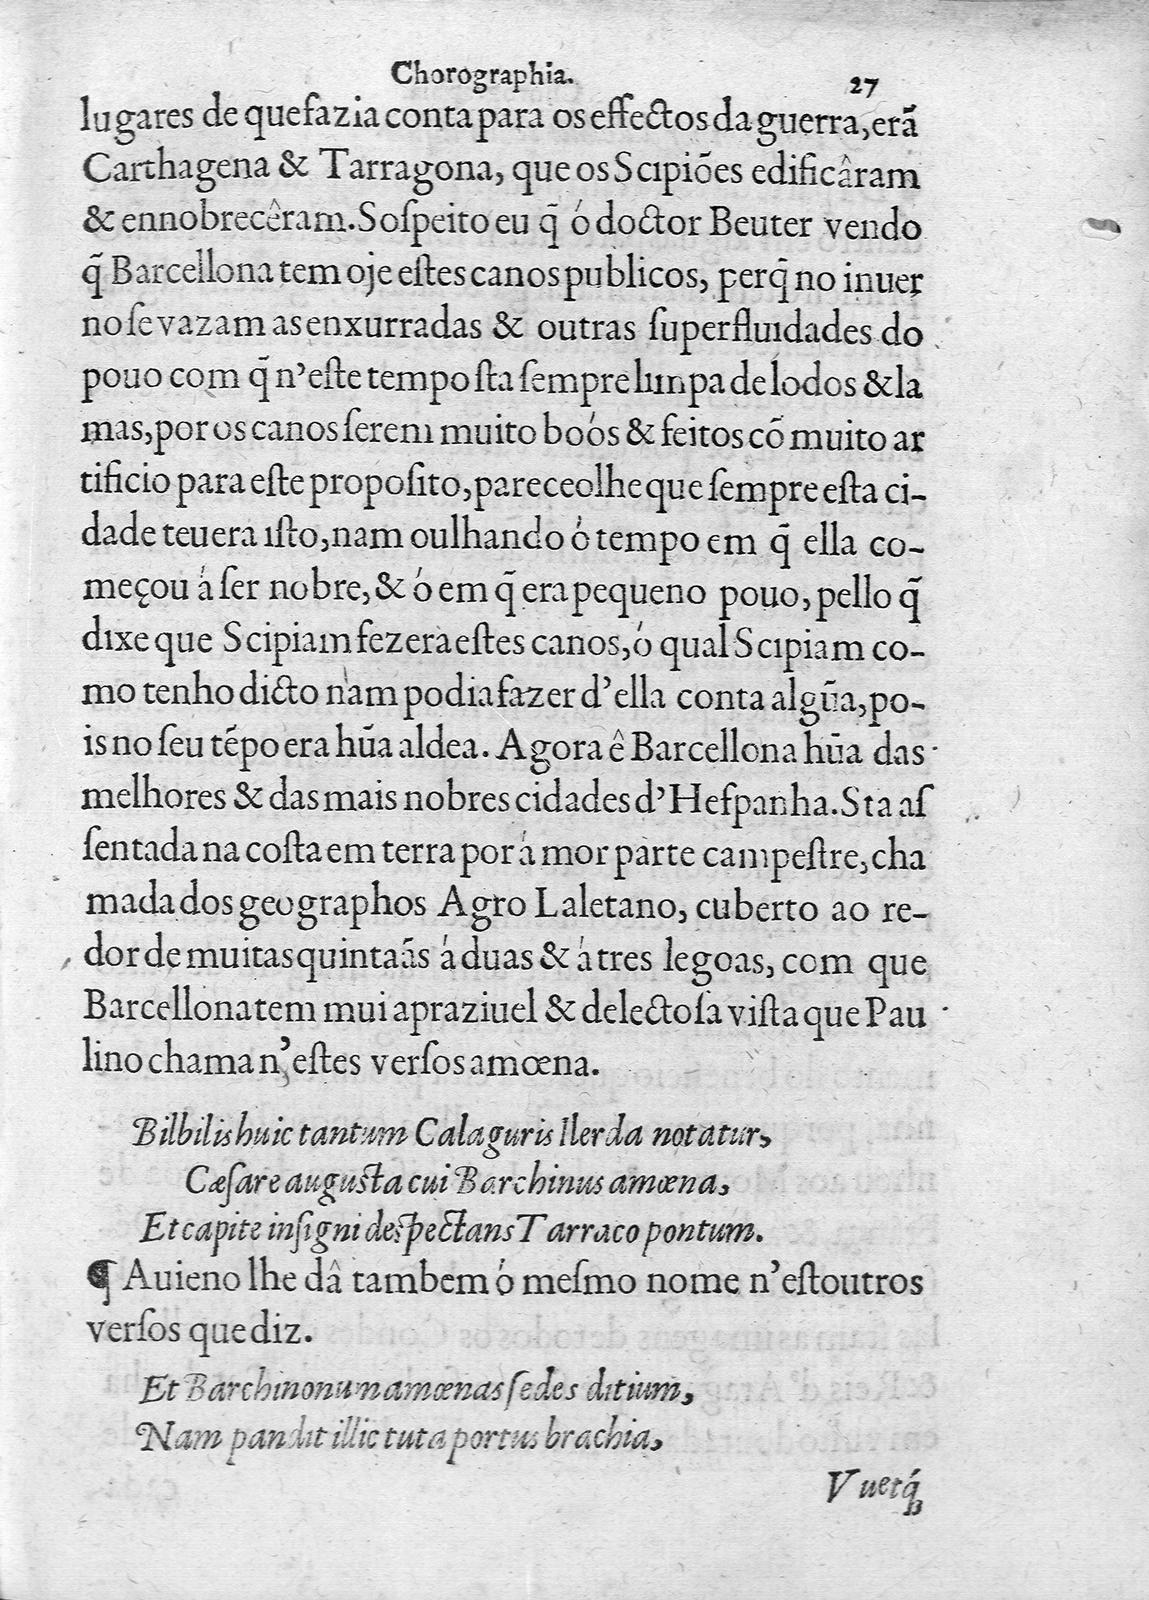 Chorographia. 27
lugares de que fazia conta para os effectos da guerra, erã
Carthagena & Tarragona, que os Scipiões edificâram
& ennobrecêram. Soſpeito eu q̃ ó doctor Beuter vendo
q̃ Barcellona tem oje eſtes canos publicos, perq̃ no inuer
no ſe vazam as enxurradas & outras ſuperfluidades do
pouo com q̃ n'eſte tempo ſta ſempre limpa de lodos & la
mas, por os canos ſerem muito boós & feitos cõ muito ar
tificio para eſte propoſito, pareceolhe que ſempre eſta ci-
dade teuera iſto, nam oulhando ó tempo em q̃ ella co-
meçou á ſer nobre, & ó em q̃ era pequeno pouo, pello q̃
dixe que Scipiam fezera eſtes canos, ó qual Scipiam co-
mo tenho dicto nam podia fazer d'ella conta algũa, po-
is no ſeu tẽpo era hũa aldea. Agora ê Barcellona hũa das
melhores & das mais nobres cidades d'Heſpanha. Sta aſ
ſentada na coſta em terra por á mor parte campeſtre, cha
mada dos geographos Agro Laletano, cuberto ao re-
dor de muitas quintaãs á duas & á tres legoas, com que
Barcellona tem mui apraziuel & delectoſa viſta que Pau
lino chama n'eſtes verſos amœna.
Bilbilis huic tantum Calaguris Ilerda notatur,
Cæſare auguſta cui Barchinus amœna,
Et capite inſigni deſpectans Tarraco pontum.
¶ Auieno lhe dâ tambem ó meſmo nome n'eſtoutros
verſos que diz.
Et Barchinonum amœnas ſedes ditium,
Nam pandit illic tuta portus brachia,
Vuetq́